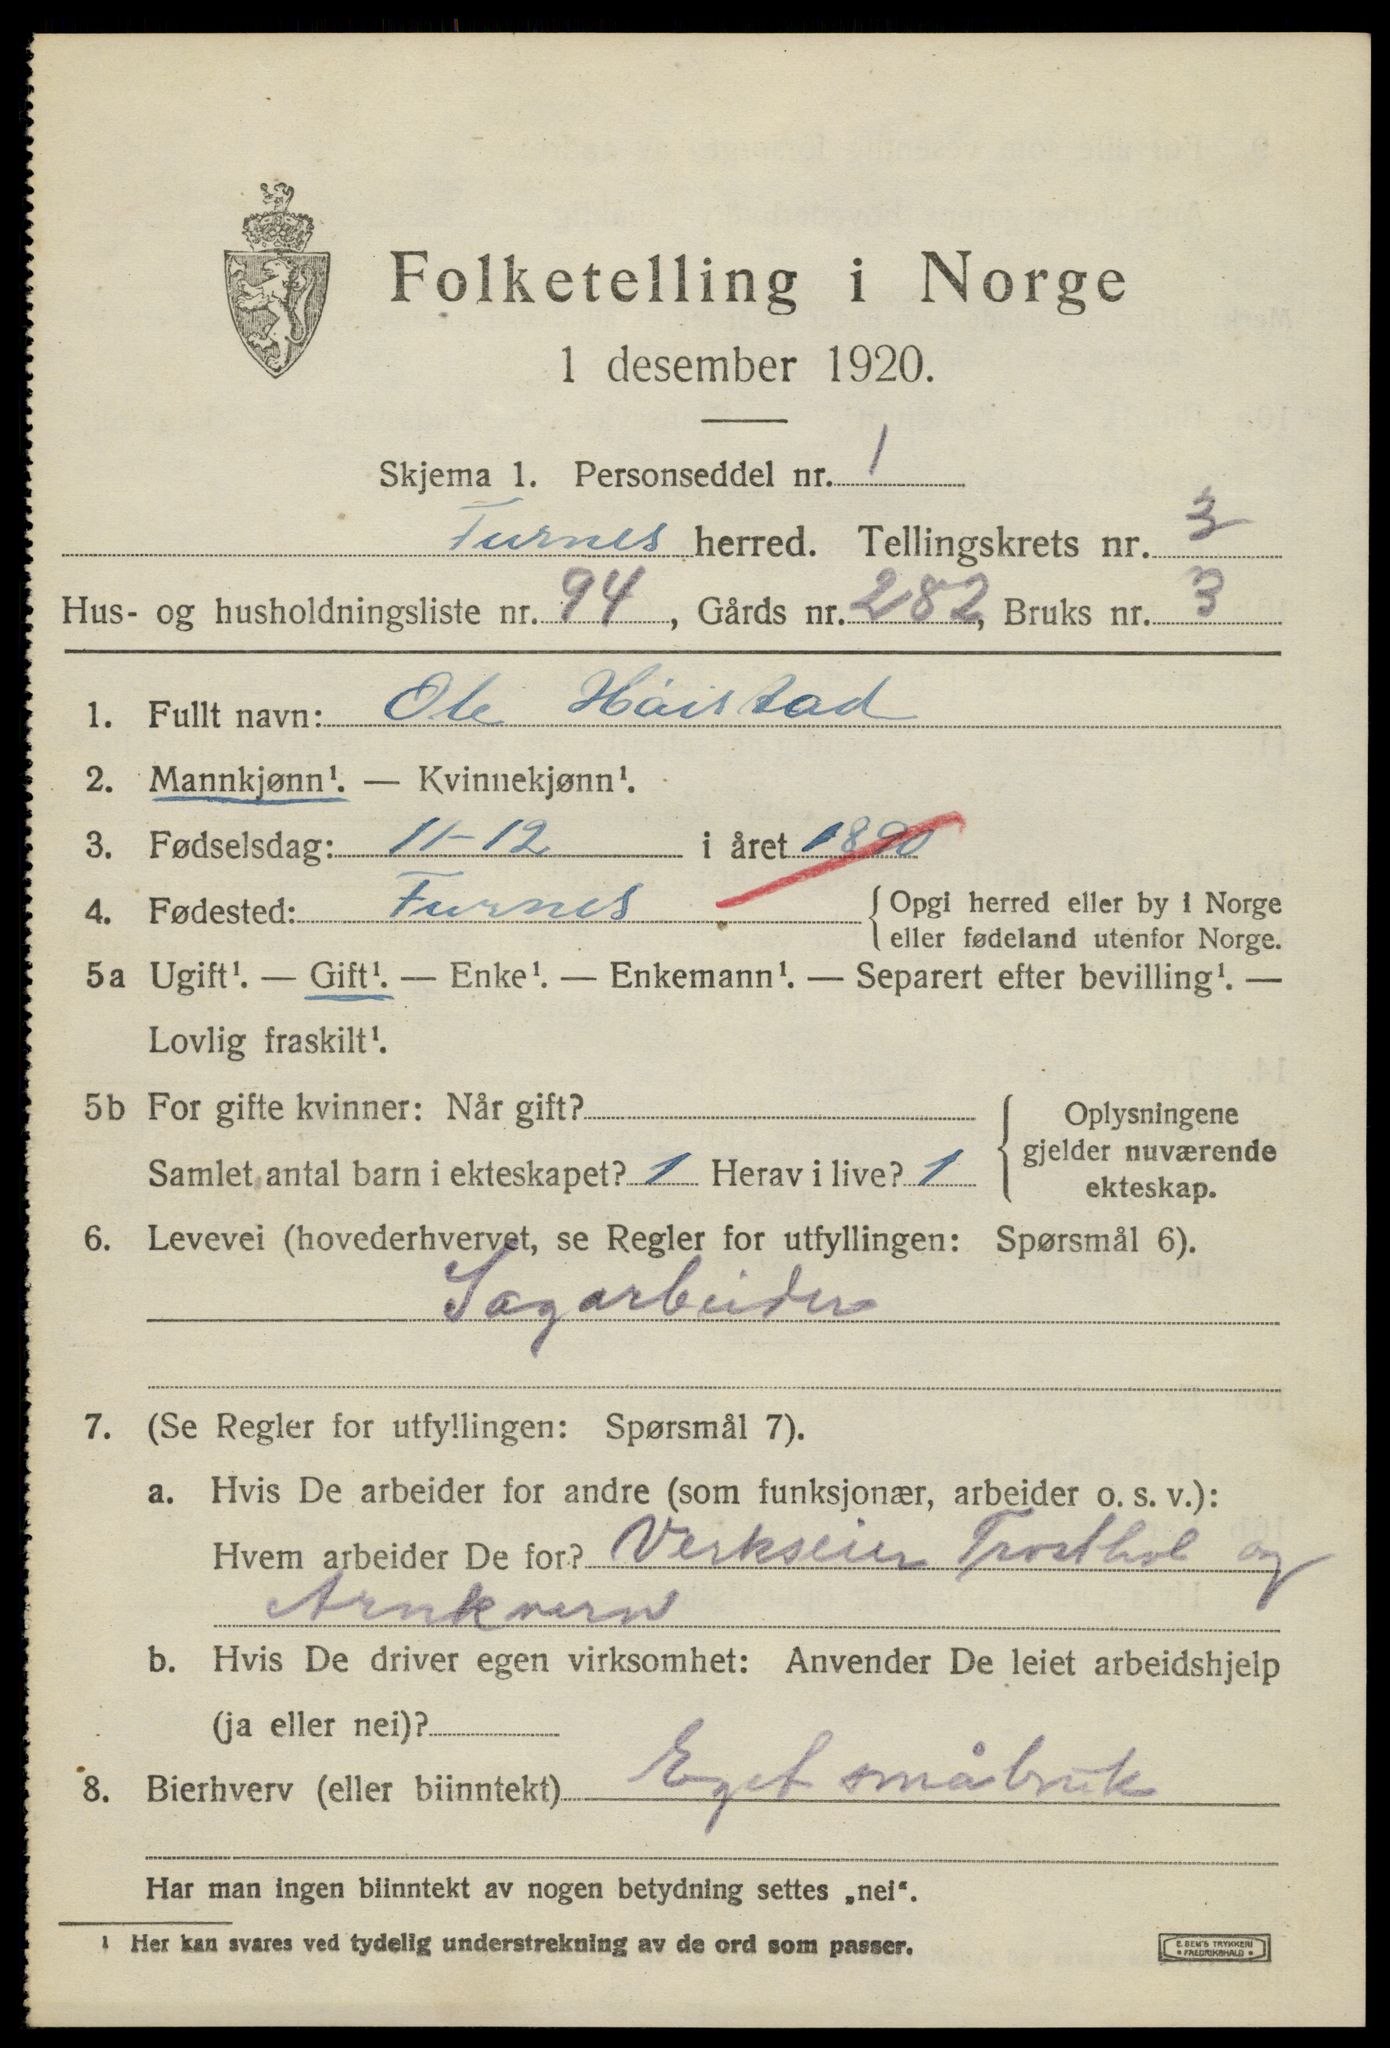 Folketelling i Norge
1 desember 1920.
Skjema 1. Personseddel nr. 1
Furnes herred. Tellingskrets nr. 3
Hus- og husholdningsliste nr. 94, Gårds nr. 282, Bruks nr. 3
1. Fullt navn: Ole Høistad
2. Mannkjønn¹. — Kvinnekjønn¹.
3. Fødselsdag: 11-12 i året 1890
4. Fødested: Furnes { Opgi herred eller by i Norge
eller fødeland utenfor Norge.
5a Ugift¹. — Gift¹. — Enke¹. — Enkemann¹. — Separert efter bevilling¹. —
Lovlig fraskilt¹.
5b For gifte kvinner: Når gift? { Oplysningene
gjelder nuværende
Samlet antal barn i ekteskapet? 1 Herav i live? 1 ekteskap.
6. Levevei (hovederhvervet, se Regler for utfyllingen: Spørsmål 6).
Sagarbeider
7. (Se Regler for utfyllingen: Spørsmål 7).
a. Hvis De arbeider for andre (som funksjonær, arbeider o. s. v.):
Hvem arbeider De for? Verkseier Trosthol og
Arnkvern
b. Hvis De driver egen virksomhet: Anvender De leiet arbeidshjelp
(ja eller nei)?
8. Bierhverv (eller biinntekt) Eget småbruk
Har man ingen biinntekt av nogen betydning settes „nei“.
¹ Her kan svares ved tydelig understrekning av de ord som passer.
E. SEM'S TRYKKERI
• FREDRIKSHALD •